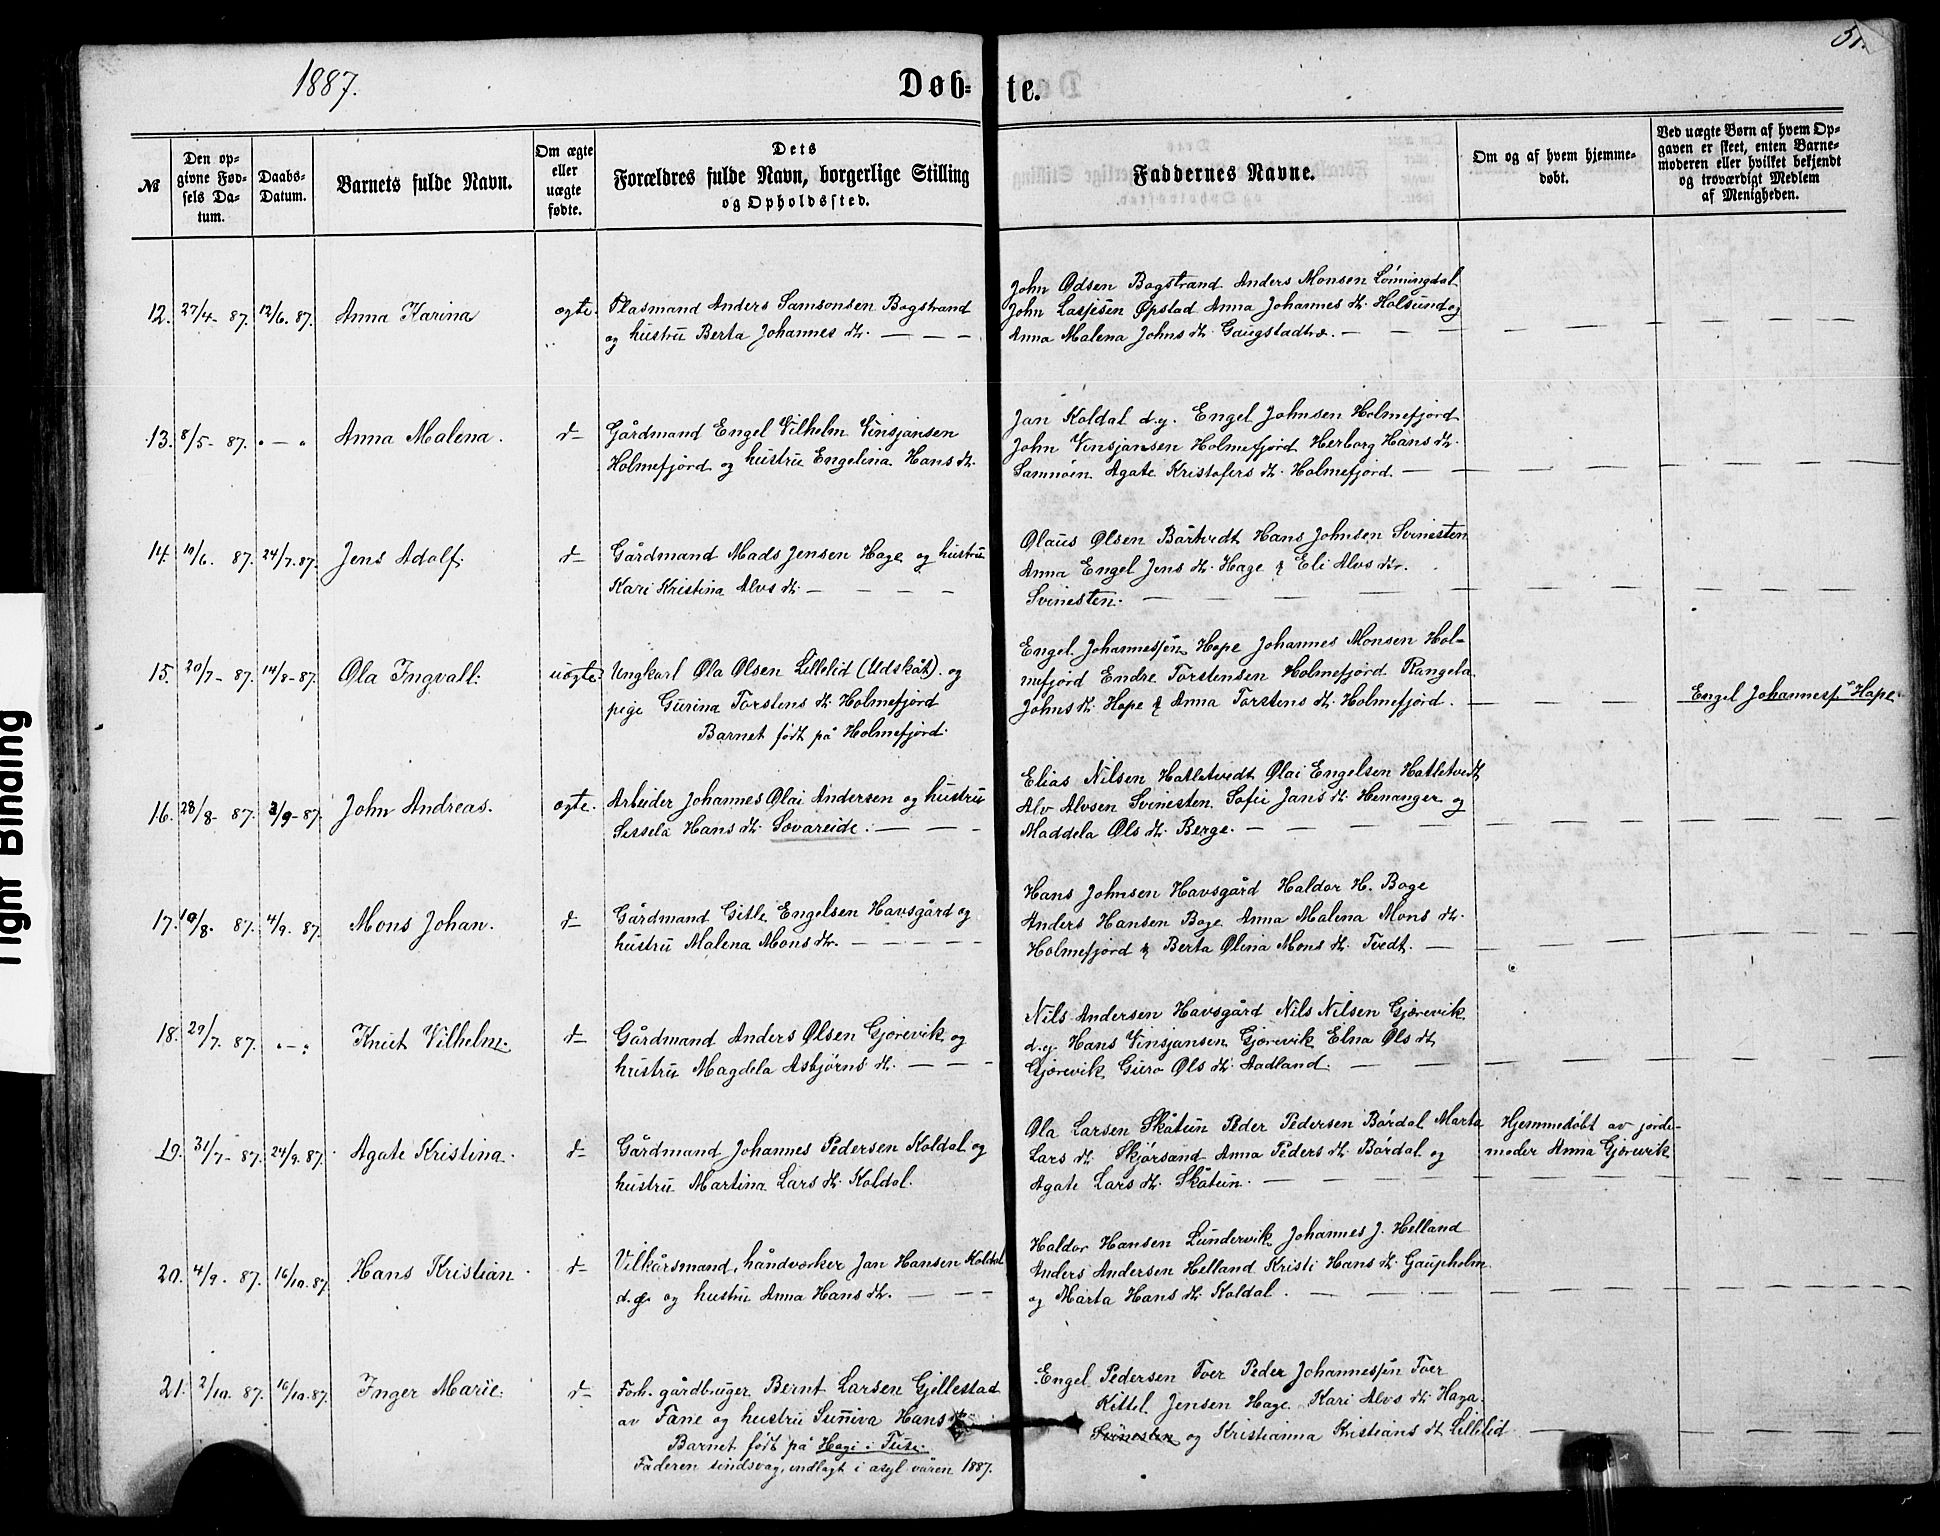 1887.
Døb-
te.
51.
№
Den op-
givne Fød-
sels Da-
tum.
Daabs-
Datum.
Barnets fulde Navn.
Om ægte
eller
uægte
fødte.
Dets
Forældres fulde Navn, borgerlige Stilling
og Opholdssted.
Faddernes Navne.
Om og af hvem hjemme-
døbt.
Ved uægte Børn af hvem Op-
gaven er skeet, enten Barne-
moderen eller hvilket bekjendt
og troværdigt Medlem
af Menigheden.
12. 27/4- 87. 12/6. 87. Anna Karina ogte.
Plasmand Anders Samsonsen Bogstrand
og hustru Berta Johannes dt. — — —
John Odsen Bogstrand Anders Monsen Lønningdal
John Lassesen Øpstad Anna Johannes dt. Holsund og
Anna Malena Johns dt. Gaugstadtræ. — — —
13. 8/5- 87. " — " Anna Malena. d-
Gårdmand Engel Vilhelm Vinsjansen
Holmefjord og hustru Engelina Hans dt.
Jan Koldal d.y. Engel Johnsen Holmefjord
John Vinsjansen Holmefjord Herborg Hans dt.
Samnøin Agate Kristofers dt. Holmefjord. — —
14. 10/6. 87. 24/7.87. Jens Adolf. d-
Gårdmand Mads Jensen Hage og hustru
Kari Kristina Alvs dt. — — — —
Olaus Olsen Bårtvedt Hans Johnsen Svinesten
Anna Engel Jens dt. Hage & Eli Alvs dtr.
Svinesten. — — — —
15. 20/7- 87. 14/8-87. Ola Ingvall. uogte.
Ungkarl Ola Olsen Lillelid (Udskåt). og
pige Gurina Torstens dt. Holmefjord
Barnet født på Holmefjord.
Engel Johannessen Hope Johannes Monsen Hol-
mefjord Endre Torstensen Holmefjord Rangela
Johns dt. Hope & Anna Torstens dt. Holmefjord.
Engel Johanness. Hope.
16. 28/8- 87. 3/9-87. John Andreas. ogte.
Arbeider Johannes Olai Andersen og hustru
Sissela Hans dt. Sovareide. — — —
Elias Nilsen Hatletvedt Olai Engelsen Hatletvedt
Alv Alvsen Svinesten. Sofie Jans dt. Henanger og
Maddela Ols dt. Berge. — — —
17. 19/8. 87. 4/9. 87. Mons Johan. d-
Gårdmand Gitle Engelsen Havsgård og
hustru Malena Mons dt. — — — —
Hans Johnsen Havsgård Haldor H. Boge
Anders Hansen Boge Anna Malena Mons dt.
Holmefjord & Berta Olina Mons dt. Tvedt. —
18. 29/7. 87. " — " Knut Vilhelm. d-
Gårdmand Anders Olsen Gjorevik og
hustru Magdela Asbjørns dt. — — —
Nils Andersen Havsgård Nils Nilsen Gjorevik
d.y. Hans Vinsjansen Gjorevik Elna Ols dt
Gjorevik Guro Ols dt. Aadland. — —
19. 31/7- 87. 24/9.87. Agate Kristina. d-
Gårdmand Johannes Pedersen Koldal og
hustru Martina Lars dt. Koldal.
Ola Larsen Skåtun Peder Pedersen Bordal Marta
Lars dt. Skjørsand Anna Peders dt. Bordal og
Agate Lars dt. Skåtun. — — —
Hjemmedøbt av jorde-
moder Anna Gjorevik
20. 4/9. 87. 16/10.87. Hans Kristian. d-
Vilkårsmand, håndverker Jan Hansen Koldal
d.æ. og hustru Anna Hans dt. — — —
Haldor Hansen Lundervik Johannes J. Helland
Anders Andersen Helland Kristi Hans dt. Gaupholm
og Marta Hans dt. Koldal. — — —
21. 2/10. 87. 16/10.87. Inger Marie. d-
Forh. gårdbruger Bernt Larsen Gjellestad
av Fane og hustru Suniva Hans dt.
Barnet født på Hagi i Fuse.
Faderen sindsvag, indlagt i asyl våren 1887.
Engel Pedersen Tver Peder Johannessen Tver
Kittel Jensen Hage Kari Alvs dt. Haga.
Svinesten og Kristianna Kristians dt Lillelid
Tight Binding